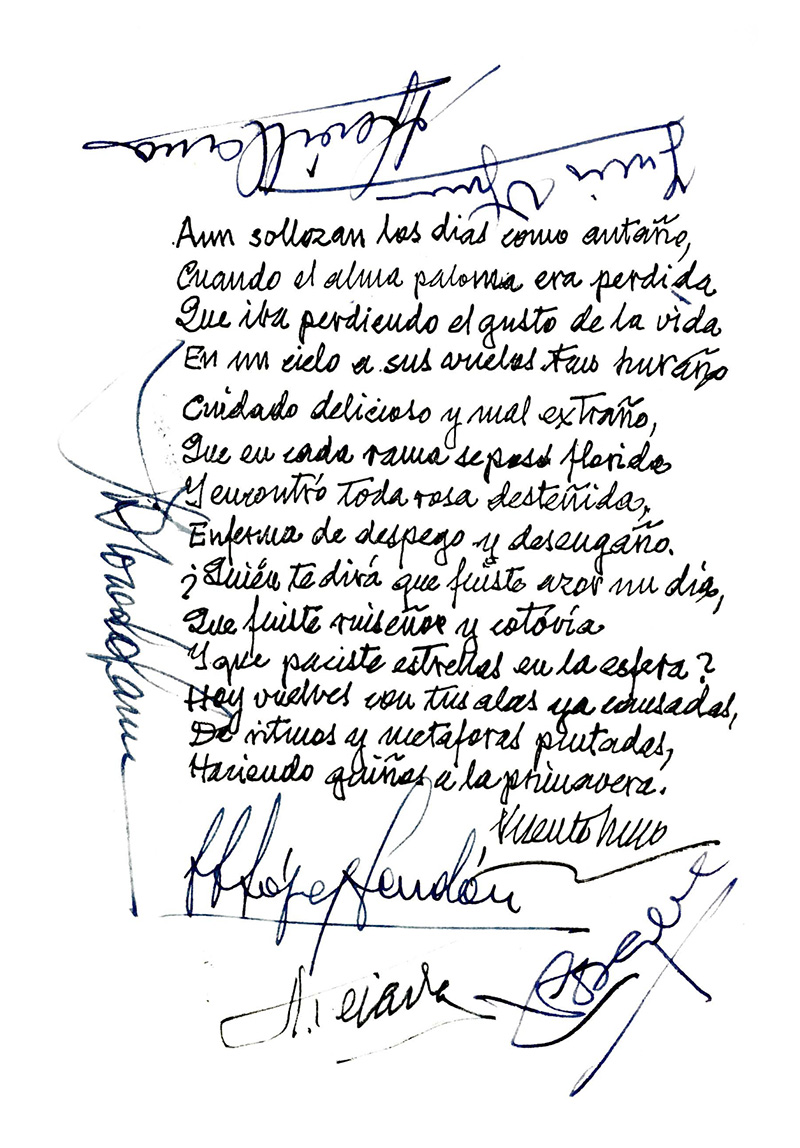 Aun sollozan los dias como antaño,
Cuando el alma paloma era perdida
Que iba perdiendo el gusto de la vida
En un cielo a sus vuelos tan huraño
Cuidado delicioso y mal extraño,
Que en cada rama se posó florida
Y encontró toda rosa desteñida,
Enferma de despego y desengaño.
¿Quién te dirá que fuiste azor un dia,
Que fuiste ruiseñor y cotovía
Y que paciste estrellas en la esfera?
Hoy vuelves con tus alas ya cansadas,
De ritmos y metaforas pintadas,
Haciendo guiños a la primavera.
López Rendón